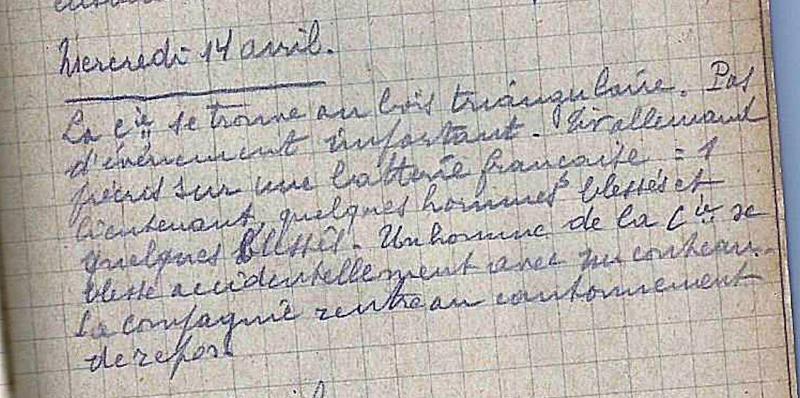 Mercredi 14 avril.
La Cie se trouve au bois triangulaire. Pas
d'événement important. Tir allemand
précis sur une batterie française = 1
lieutenant, quelques hommes blessés et
quelques blessés. Un homme de la Cie se
blesse accidentellement avec un couteau.
La compagnie rentre au cantonnement
de repos.